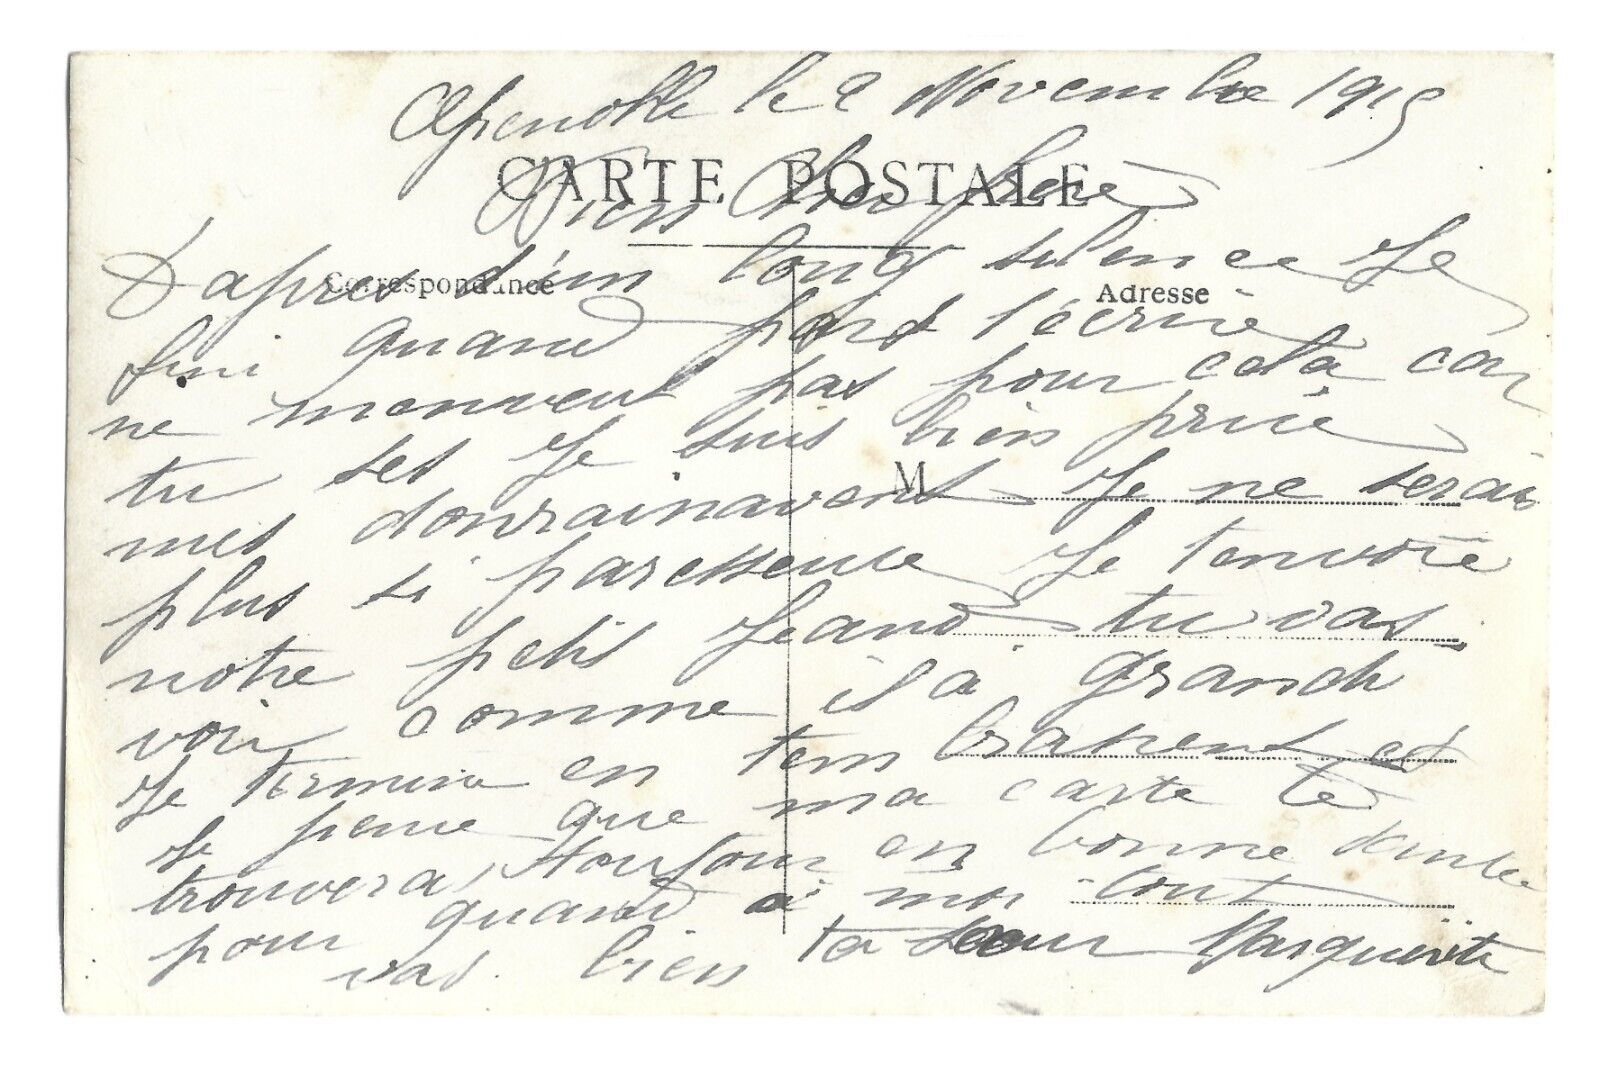 Grenoble le 2 Novembre 1915
CARTE POSTALE
Bien Cher frere
Correspondance
Adresse
D'apres d'un long silence Je
fini quand pard t'écrire
ne m'enveut pas pour cela car
tu ses Je suis bien prise
M
mes dorrainavent Je ne serais
plus si paresseuse Je tenvoie
notre petis Jeand tu vas
voir comme il à grandi
Je termine en tem brassent et
Je pense que ma carte te
trouvera toujour en bonne santee
pour quand a moi tout
vas bien ta soeur Marguerite